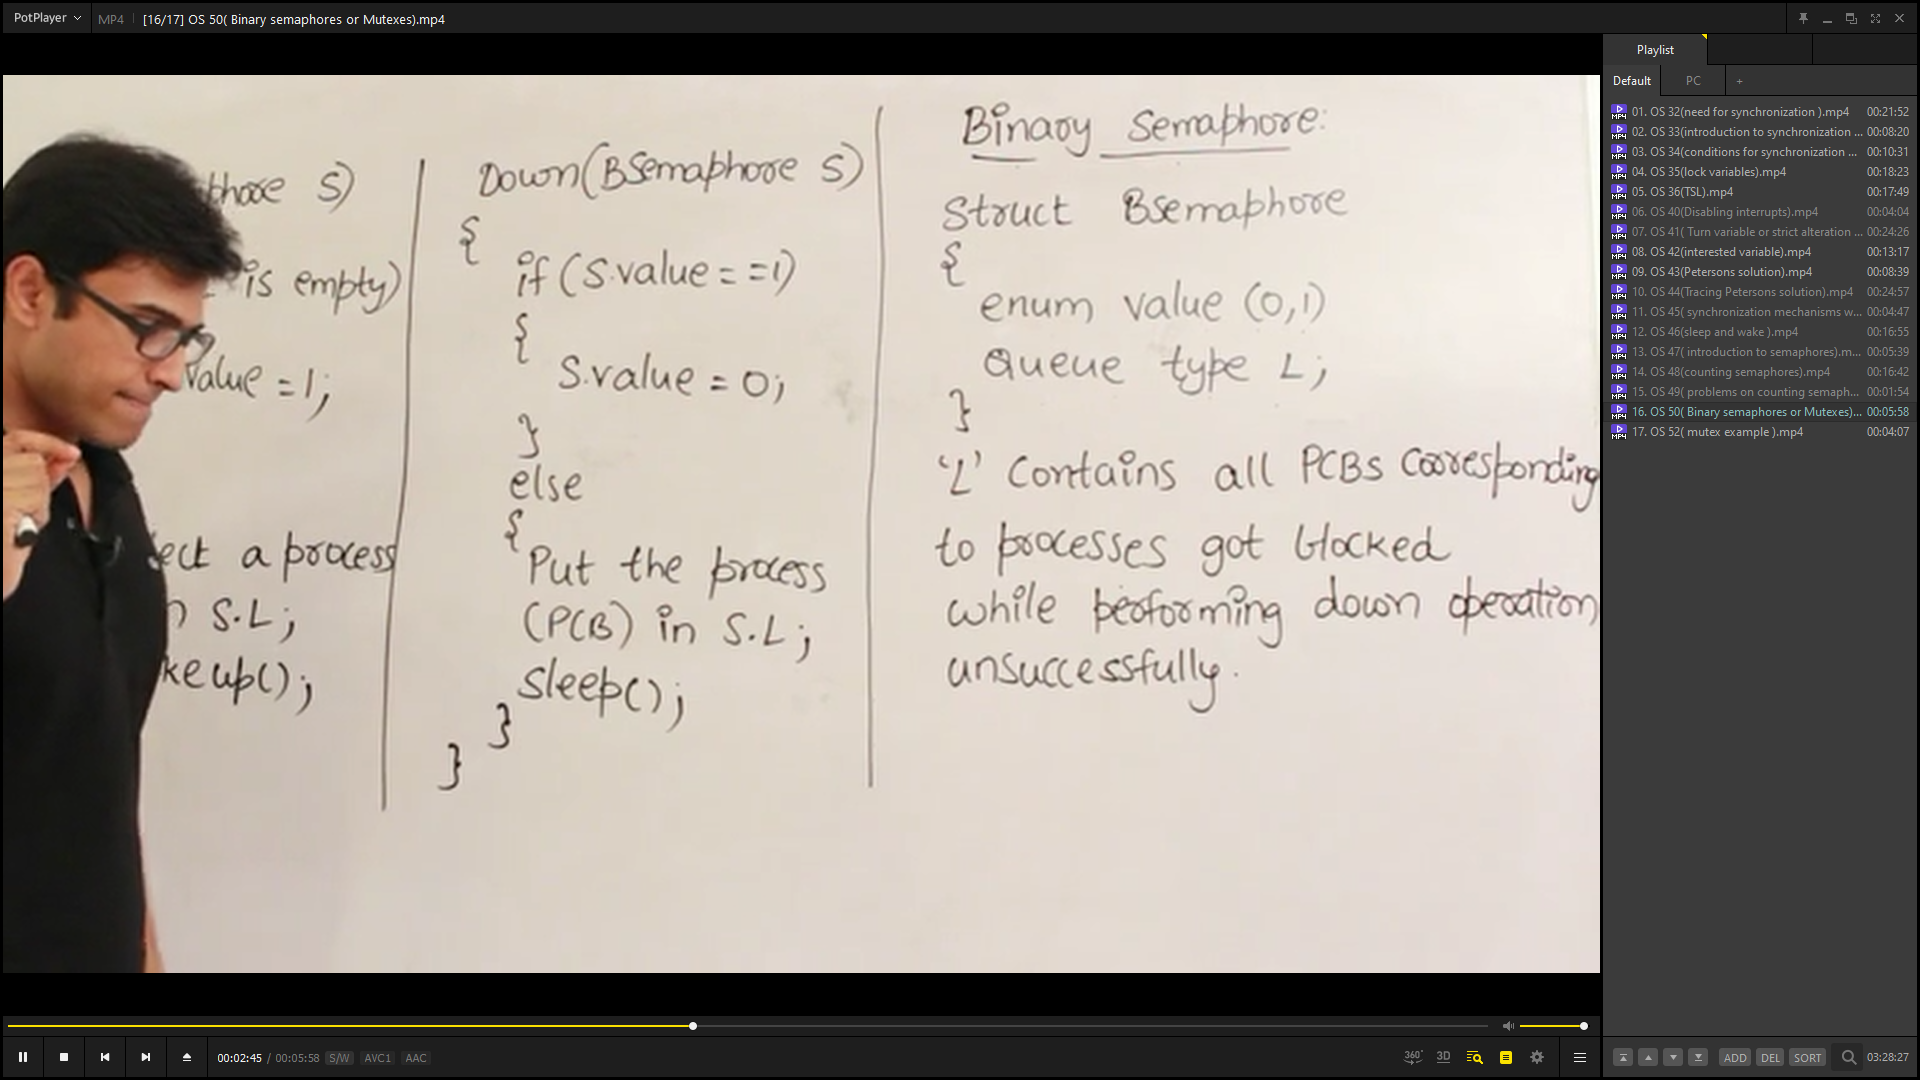 PotPlayer
MP4
[16/17] OS 50( Binary semaphores or Mutexes).mp4
S)
is empty)
value = 1;
a process
S.L;
up();
Down(BSemaphore S)
{
if (S.value == 1)
{
S.value = 0;
}
else
{
Put the process
(PCB) in S.L;
Sleep();
}
}
Binary Semaphore:
Struct Bsemaphore
{
enum value (0,1)
Queue type L;
}
'L' contains all PCBs corresponding
to processes got blocked
while performing down operation
unsuccessfully.
Playlist
Default
PC
+
01. OS 32(need for synchronization ).mp4 00:21:52
02. OS 33(introduction to synchronization ... 00:08:20
03. OS 34(conditions for synchronization ... 00:10:31
04. OS 35(lock variables).mp4 00:18:23
05. OS 36(TSL).mp4 00:17:49
06. OS 40(Disabling interrupts).mp4 00:04:04
07. OS 41( Turn variable or strict alteration ... 00:24:26
08. OS 42(interested variable).mp4 00:13:17
09. OS 43(Petersons solution).mp4 00:08:39
10. OS 44(Tracing Petersons solution).mp4 00:24:57
11. OS 45( synchronization mechanisms w... 00:04:47
12. OS 46(sleep and wake ).mp4 00:16:55
13. OS 47( introduction to semaphores).m... 00:05:39
14. OS 48(counting semaphores).mp4 00:16:42
15. OS 49( problems on counting semaph... 00:01:54
16. OS 50( Binary semaphores or Mutexes)... 00:05:58
17. OS 52( mutex example ).mp4 00:04:07
00:02:45 / 00:05:58 S/W AVC1 AAC
360° 3D
ADD DEL SORT 03:28:27